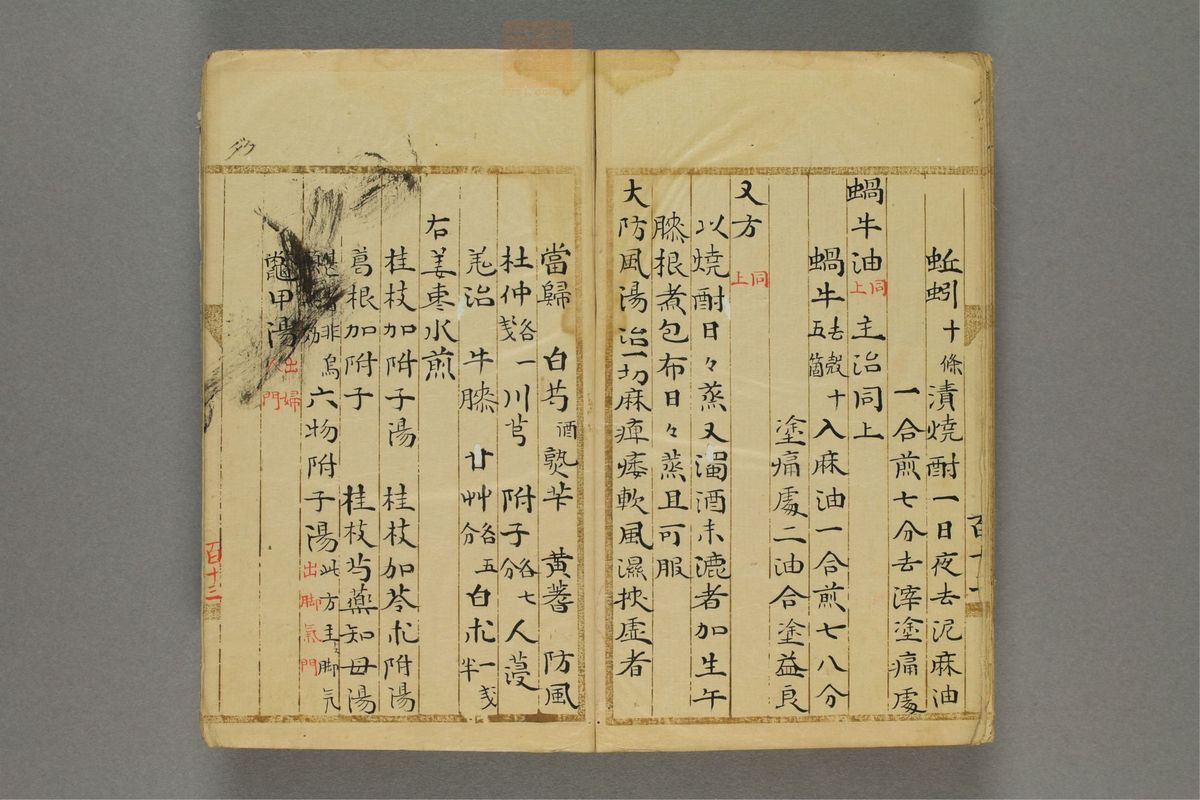 蚯蚓十條漬燒酎一日夜去泥麻油
一合煎七分去滓塗痛處
蝸牛油同上主治同上
蝸牛去殼十五箇入麻油一合煎七八分
塗痛處二油合塗益良
又方同上
以燒酎日々蒸又濁酒未漉者加生午
膝根煮包布日々蒸且可服
大防風湯治一切麻痺痿軟風濕挾虛者
百十
當歸 白芍酒 熟苄 黄蓍 防風
杜仲各戔一川芎 附子各七分人蔆
羗治 牛膝 甘艸各五分白朮一戔半
右姜枣水煎
桂枝加附子湯 桂枝加苓朮附湯
葛根加附子 桂枝芍藥知母湯
非烏 六物附子湯此方主脚氣出脚氣門
鼈甲湯出婦人門
百十三